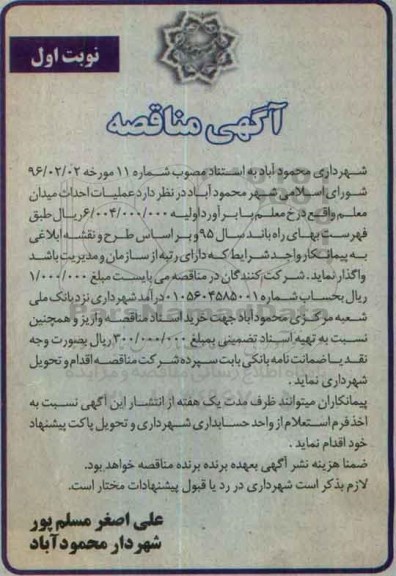 نوبت اول
آگهی مناقصه
شهرداری محمود آباد به استناد مصوب شماره ۱۱ مورخه ۹۶/۰۲/۰۲
شورای اسلامی شهر محمود آباد در نظر دارد عملیات احداث میدان
معلم واقع در خ معلم با برآورد اولیه ۶/۰۰۴/۰۰۰/۰۰۰ ریال طبق
فهرست بهای راه باند سال ۹۵ و بر اساس طرح و نقشه ابلاغی
به پیمانکار واجد شرایط که دارای رتبه از سازمان و مدیریت باشد
واگذار نماید . شرکت کنندگان در مناقصه می بایست مبلغ ۱/۰۰۰/۰۰۰
ریال بحساب شماره ۰۱۰۵۶۰۴۵۸۵۰۰۱ درآمد شهرداری نزد بانک ملی
شعبه مرکزی محمودآباد جهت خرید اسناد مناقصه واریز و همچنین
نسبت به تهیه اسناد تضمینی بمبلغ ۳۰۰/۰۰۰/۰۰۰ ریال بصورت وجه
نقد یا ضمانت نامه بانکی بابت سپرده شرکت مناقصه اقدام و تحویل
شهرداری نماید .
پیمانکاران میتوانند ظرف مدت یک هفته از انتشار این آگهی نسبت به
اخذ فرم استعلام از واحد حسابداری شهرداری و تحویل پاکت پیشنهاد
خود اقدام نماید .
ضمنا هزینه نشر آگهی بعهده برنده برنده مناقصه خواهد بود.
لازم بذکر است شهرداری در رد یا قبول پیشنهادات مختار است.
علی اصغر مسلم پور
شهردار محمودآباد